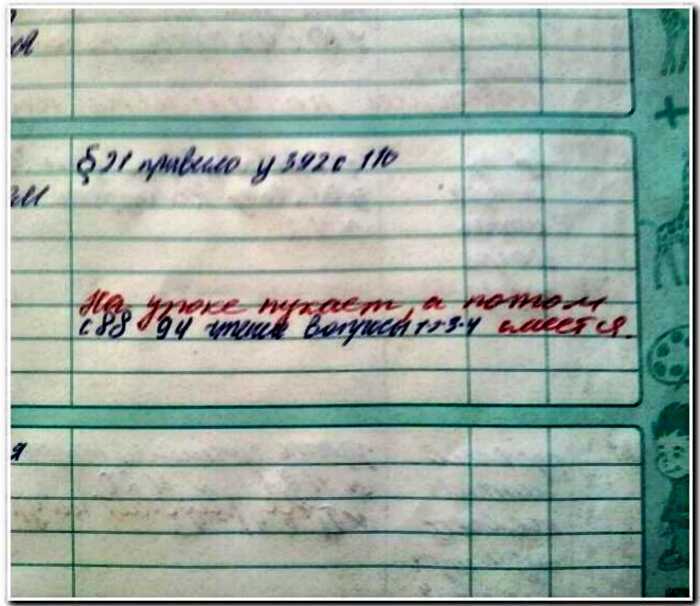 ья
§ 21 правило у 392 с 110
ом
На уроке пукает, а потом
с 88 94 чтение вопросы 1-2-3-4 смеется.
я